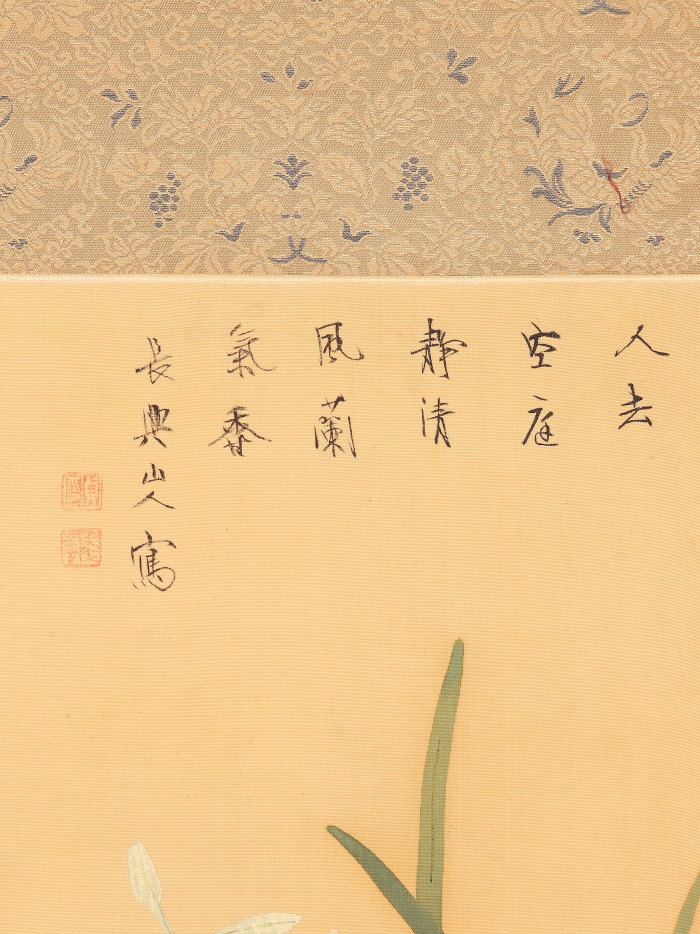 人去
空庭
靜清
風蘭
氣香
長興山人寫